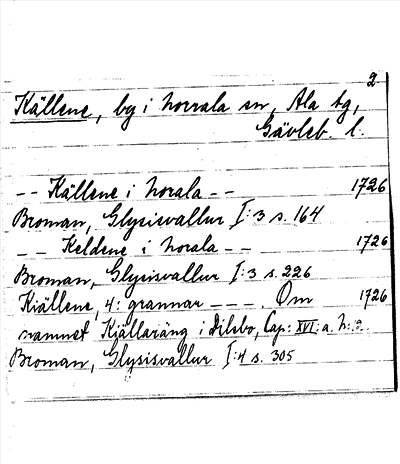 2
Källene, by i Norrala sn, Ala tg,
Gävleb. l.
-- Källene i Norala -- 1726
Broman, Glysisvallur I:3 s. 164
-- Keldene i Norala -- 1726
Broman, Glysisvallur I:3 s. 226
Kiällene, 4: grannar --- . Om 1726
namnet Kjällaräng i Dilsbo, Cap: XVI: a. N: 2.
Broman, Glysisvallur I:4 s. 305